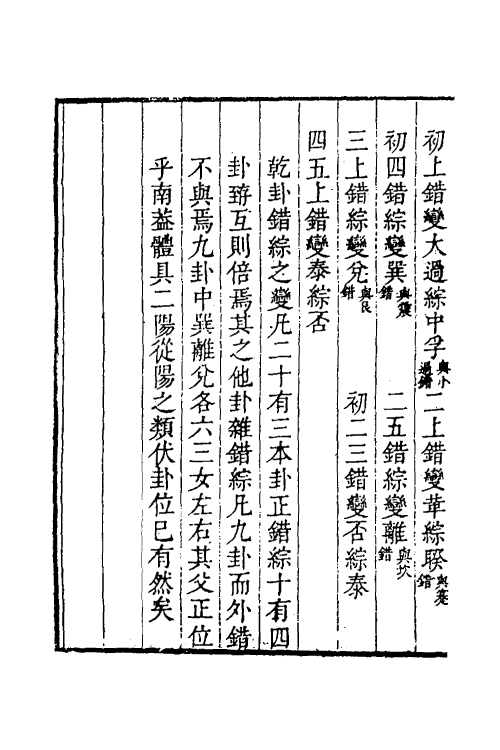 初上錯變大過綜中孚與小過錯二上錯變革綜睽與蹇錯
初四錯綜變巽與震錯 二五錯綜變離與坎錯
三上錯綜變兌與艮錯 初二三錯變否綜泰
四五上錯變泰綜否
乾卦錯綜之變凡二十有三本卦正錯綜十有四
卦互則倍焉其之他卦雜錯綜凡九卦而外錯
不與焉九卦中巽離兌各六三女左右其父正位
乎南葢體具二陽從陽之類伏卦位已有然矣